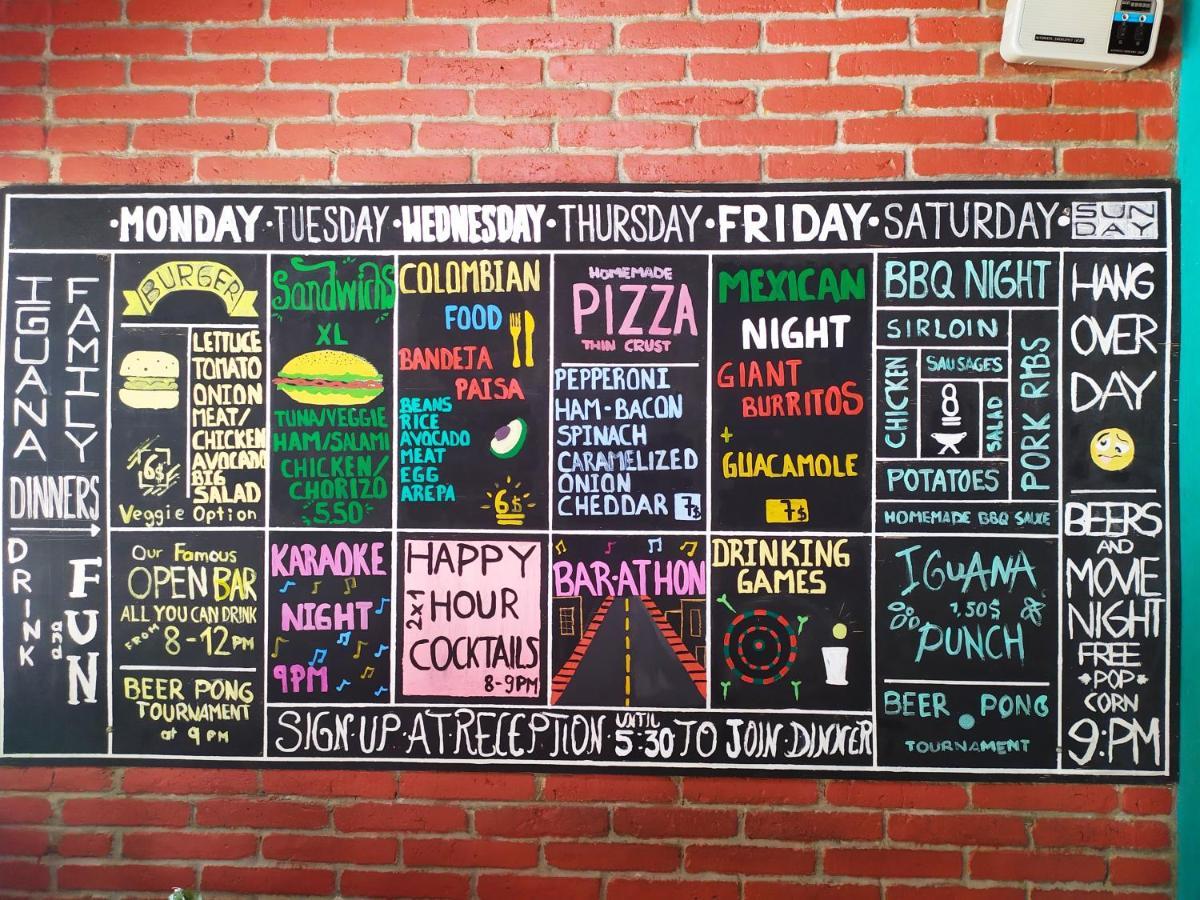 ·MONDAY·TUESDAY·WEDNESDAY·THURSDAY·FRIDAY·SATURDAY·SUN
DAY
IGUANA
FAMILY
DINNERS
DRINK
and
FUN
BURGER
LETTUCE
TOMATO
ONION
MEAT/
CHICKEN
AVOCADO
BIG
SALAD
6$
Veggie Option
Our Famous
OPEN BAR
ALL YOU CAN DRINK
FROM 8-12PM
BEER PONG
TOURNAMENT
at 9 PM
Sandwichs
XL
TUNA/VEGGIE
HAM/SALAMI
CHICKEN/
CHORIZO
5.50
KARAOKE
NIGHT
9PM
COLOMBIAN
FOOD
BANDEJA
PAISA
BEANS
RICE
AVOCADO
MEAT
EGG
AREPA
6$
HAPPY
2x1 HOUR
COCKTAILS
8-9PM
HOMEMADE
PIZZA
THIN CRUST
PEPPERONI
HAM-BACON
SPINACH
CARAMELIZED
ONION
CHEDDAR 7$
BAR-ATHON
MEXICAN
NIGHT
GIANT
BURRITOS
+
GUACAMOLE
7$
DRINKING
GAMES
SIGN·UP·AT·RECEPTION·UNTIL 5:30 TO JOIN DINNER
BBQ NIGHT
SIRLOIN
CHICKEN
SAUSAGES
8
SALAD
PORK RIBS
POTATOES
HOMEMADE BBQ SAUCE
IGUANA
1,50$
PUNCH
BEER PONG
TOURNAMENT
HANG
OVER
DAY
BEERS
AND
MOVIE
NIGHT
FREE
POP
CORN
9:PM